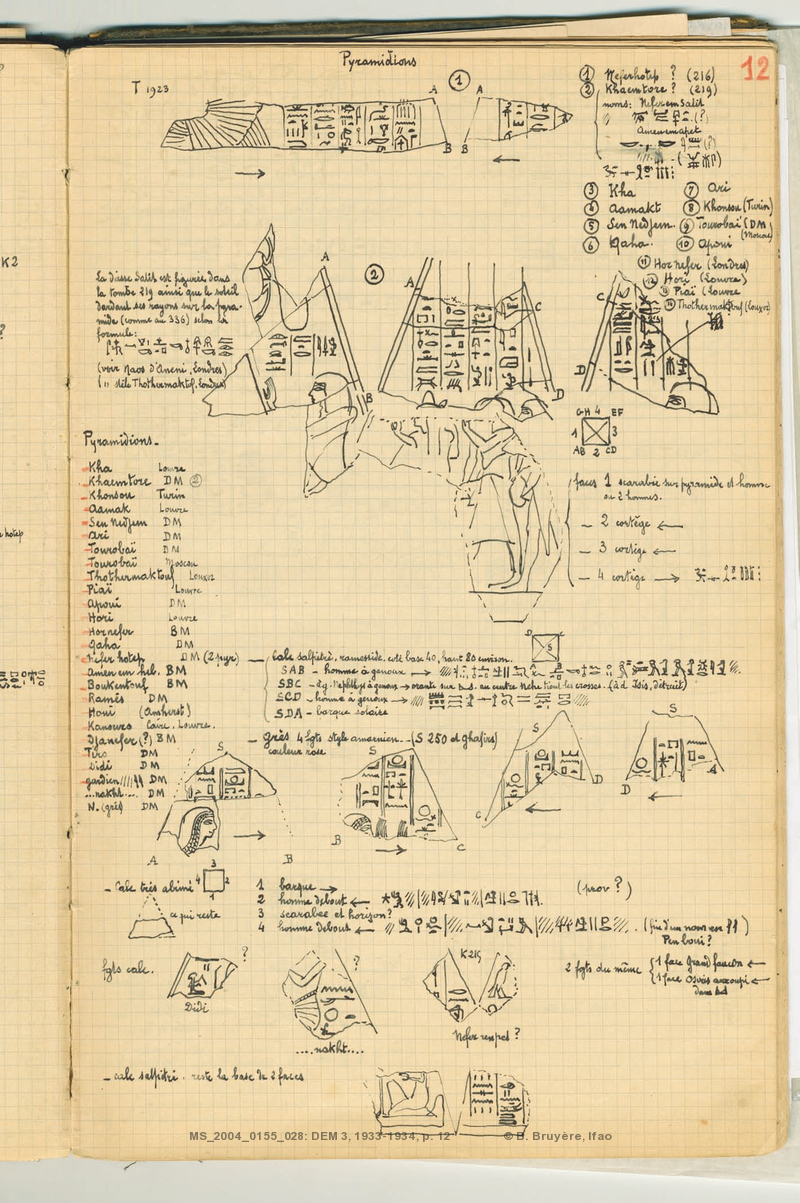 Pyramidions
12
T 1923
① Neferhotep ? (216)
② Khaemtore ? (219)
noms: Nefer em Salit
Amenemapet
③ Kha
④ Aamakt
⑤ Sen Nedjem.
⑥ Qaha.
⑦ Ari
⑧ Khonsou (Turin)
⑨ Tourobaï (DM
(Moscou)
⑩ Apoui
⑪ Hornefer (Londres)
⑫ Hori (Louvre)
⑬ Piaï (Louvre
⑭ Thothermaktouf (Louxor)
①
A A
B B
②
A
B
A C
D
C
D
La déesse Salit est figurée dans
la tombe 219 ainsi que le soleil
dardant ses rayons sur la pyra-
mide (comme au 336) selon la
formule:
(voir Naos d'Aneni, Londres)
( " stèle Thothermaktouf, Londres)
GH 4 EF
1 3
AB 2 CD
faces 1 scarabée sur pyramide et homme
ou 2 hommes.
— 2 cortège ←
— 3 cortège ←
— 4 cortège →
Pyramidions -
Kha Louvre
Khaemtore DM ②
Khonsou Turin
Aamak Louvre
Sen Nedjem DM
Ari DM
Tourobaï DM
Tourobaï Moscou
Thothermaktouf Louxor
Piaï Louvre
Apoui DM
Hori Louvre
Hornefer BM
Qaha DM
Nefer hotep DM (2 pyr)
Amen em heb. BM
Boukentouf BM
Ramès DM
Houi (Amherst)
Kanoure Caire. Louvre.
Djanefer (?) BM
Tiro DM
Didi DM
gardien //// DM
...nakht... DM
N. (grès) DM
— calc salpêtré, ramesside, coté base 40, haut 80 environ.
SAB - homme à genoux →
SBC -
SCD - homme à genoux →
SDA - barque solaire
D
S
— Grès 4 fgts style amarnien — (S 250 et ghafirs)
couleur rose
S
A → B
S
B → C
S
C ← D
S
D ← A
— Calc très abîmé
3
4 2
1
ce qui reste
1 barque →
2 homme debout ←
3 scarabée et horizon?
4 homme debout ←
(prov ?)
(fin d'un nom en
Pen boui ?
fgts calc.
?
Didi
?
....nakht....
K 215
Nefer renpet ?
2 fgts du même
1 face grand faucon ←
1 face Osiris accroupi ←
— calc salpêtré . reste la base de 2 faces
MS_2004_0155_028: DEM 3, 1933-1934, p. 12 © B. Bruyère, Ifao